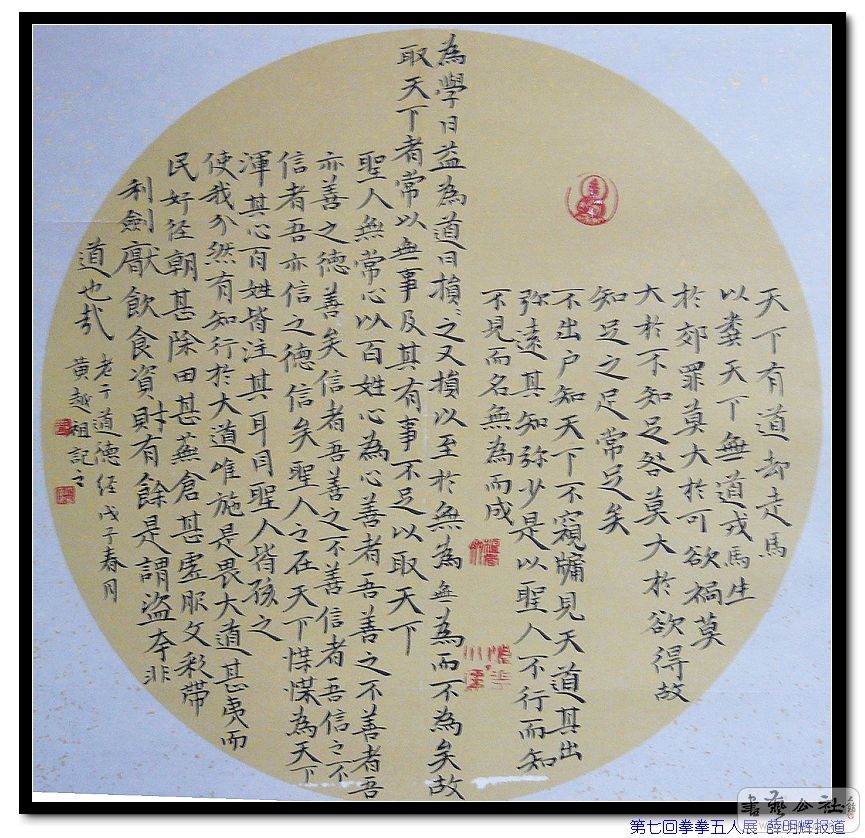 天下有道却走馬
以糞天下無道戎馬生
於郊罪莫大於可欲禍莫
大於不知足咎莫大於欲得故
知足之足常足矣
不出户知天下不窺牖見天道其出
弥遠其知弥少是以聖人不行而知
不見而名無為而成
為學日益為道日損〻之又損以至於無為無為而不為矣故
取天下者常以無事及其有事不足以取天下
聖人無常心以百姓心為心善者吾善之不善者吾
亦善之德善矣信者吾善之不善信者吾信之不
信者吾亦信之德信矣聖人之在天下惵惵為天下
渾其心百姓皆注其耳目聖人皆孩之
使我介然有知行於大道唯施是畏大道甚夷而
民好徑朝甚除田甚蕪倉甚虛服文彩帶
利劍厭飲食資財有餘是謂盜夸非
道也哉
老子道德经戊子春月
黄越祖記之
書藝公社
第七回拳拳五人展 薛明辉报道